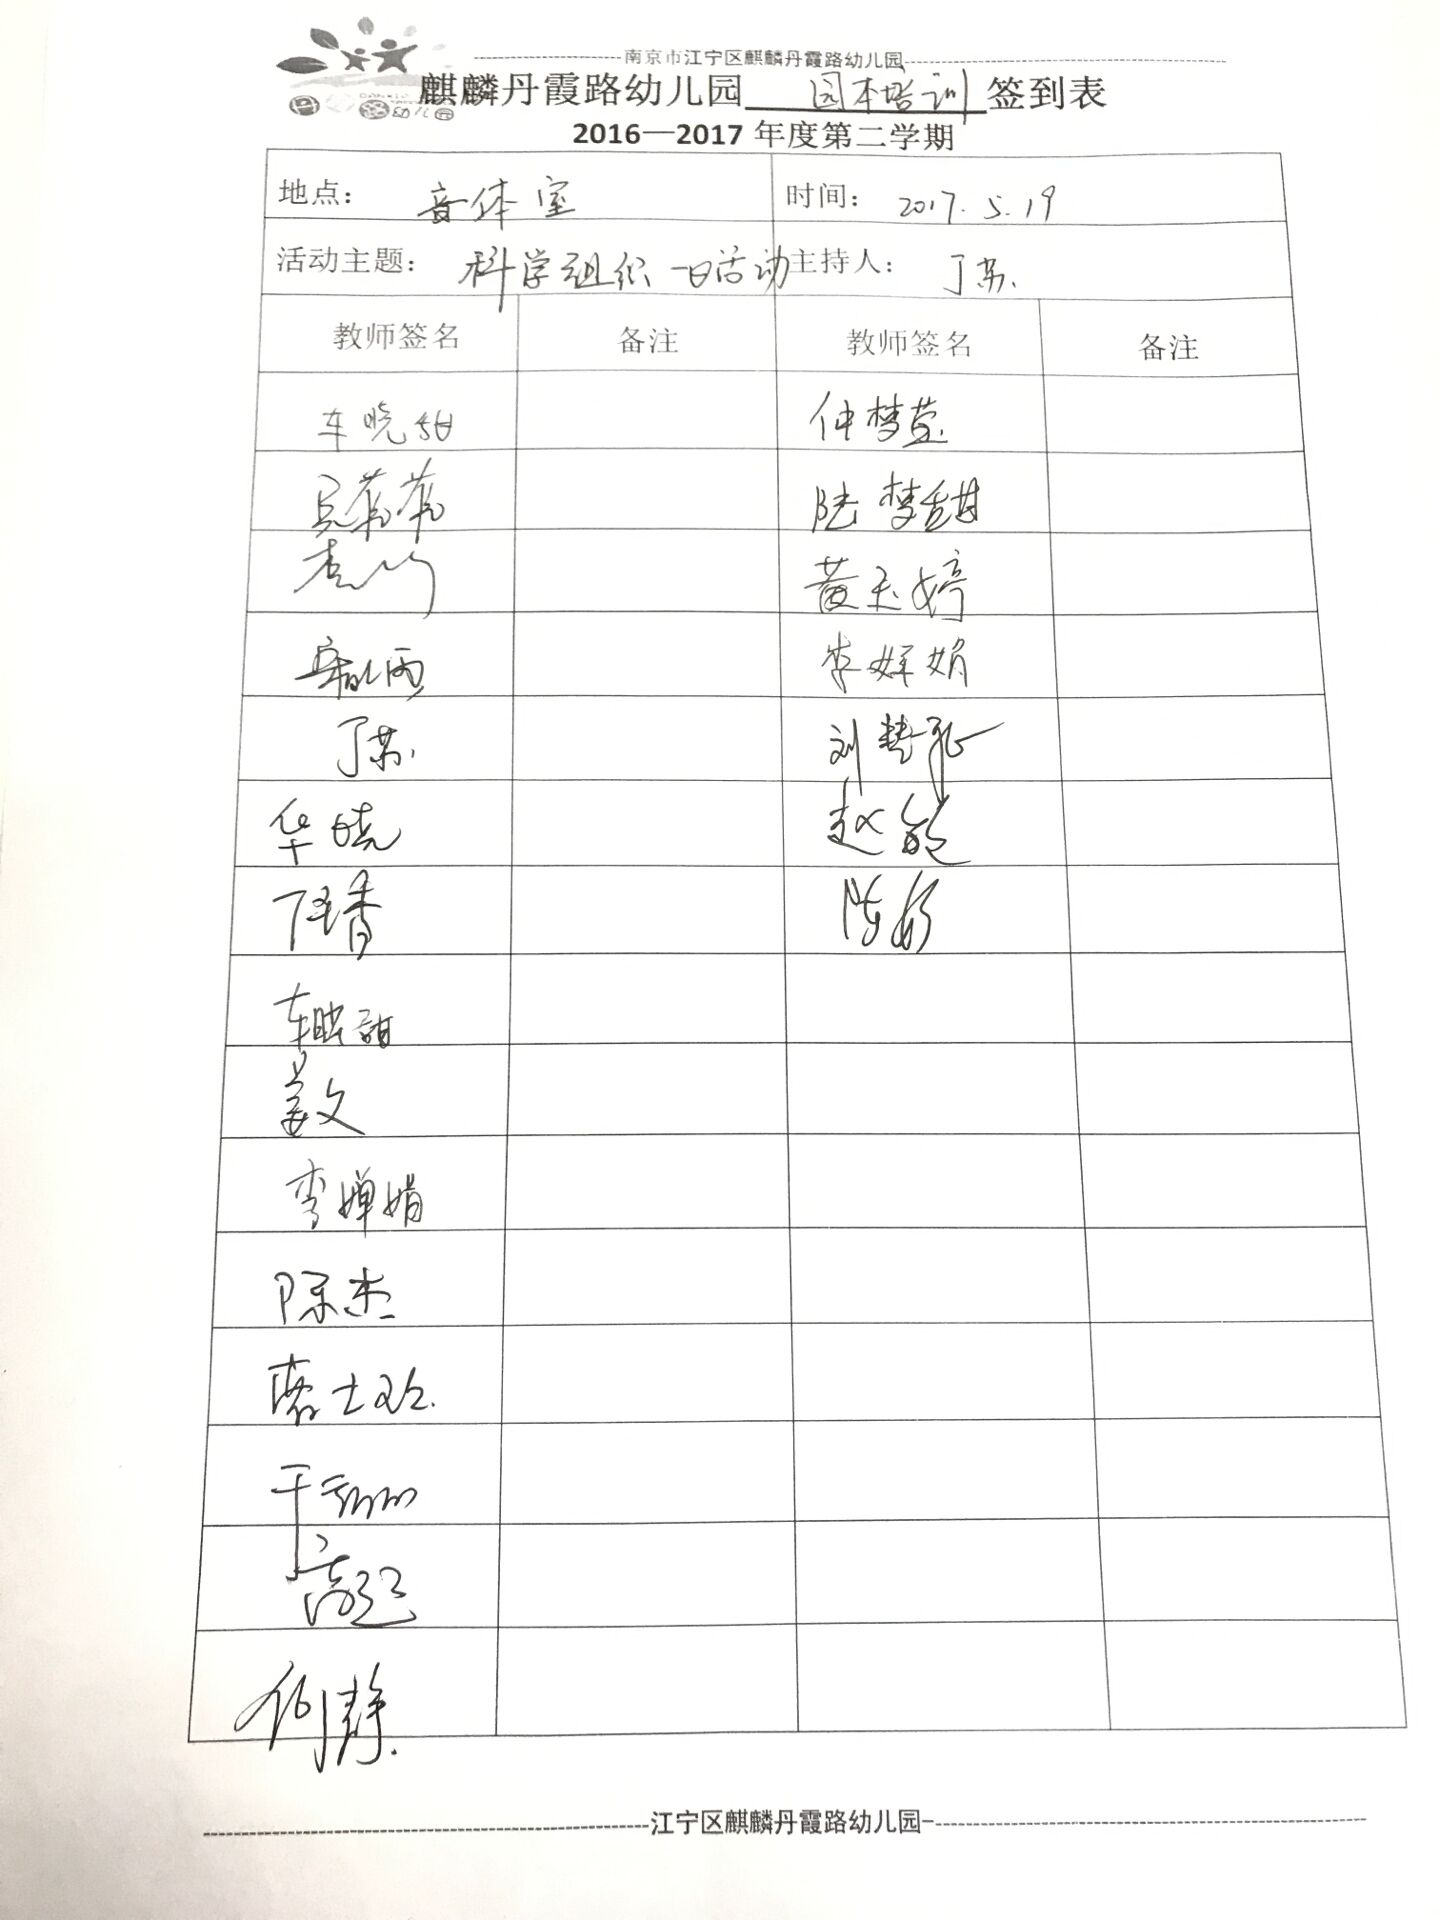 南京市江宁区麒麟丹霞路幼儿园
麒麟丹霞路幼儿园 园本培训 签到表
2016—2017 年度第二学期
地点： 音体室 时间： 2017.5.19
活动主题： 科学组织一日活动 主持人： 丁苏.
教师签名 备注 教师签名 备注
车晓甜 仲梦莹
吴莆莆 陆梦甜
黄玉婷
李婵娟
丁苏. 刘慧
华晓 赵
陈
车晓甜
姜文
李婵娟
陈杰
士
于
高
何静.
江宁区麒麟丹霞路幼儿园